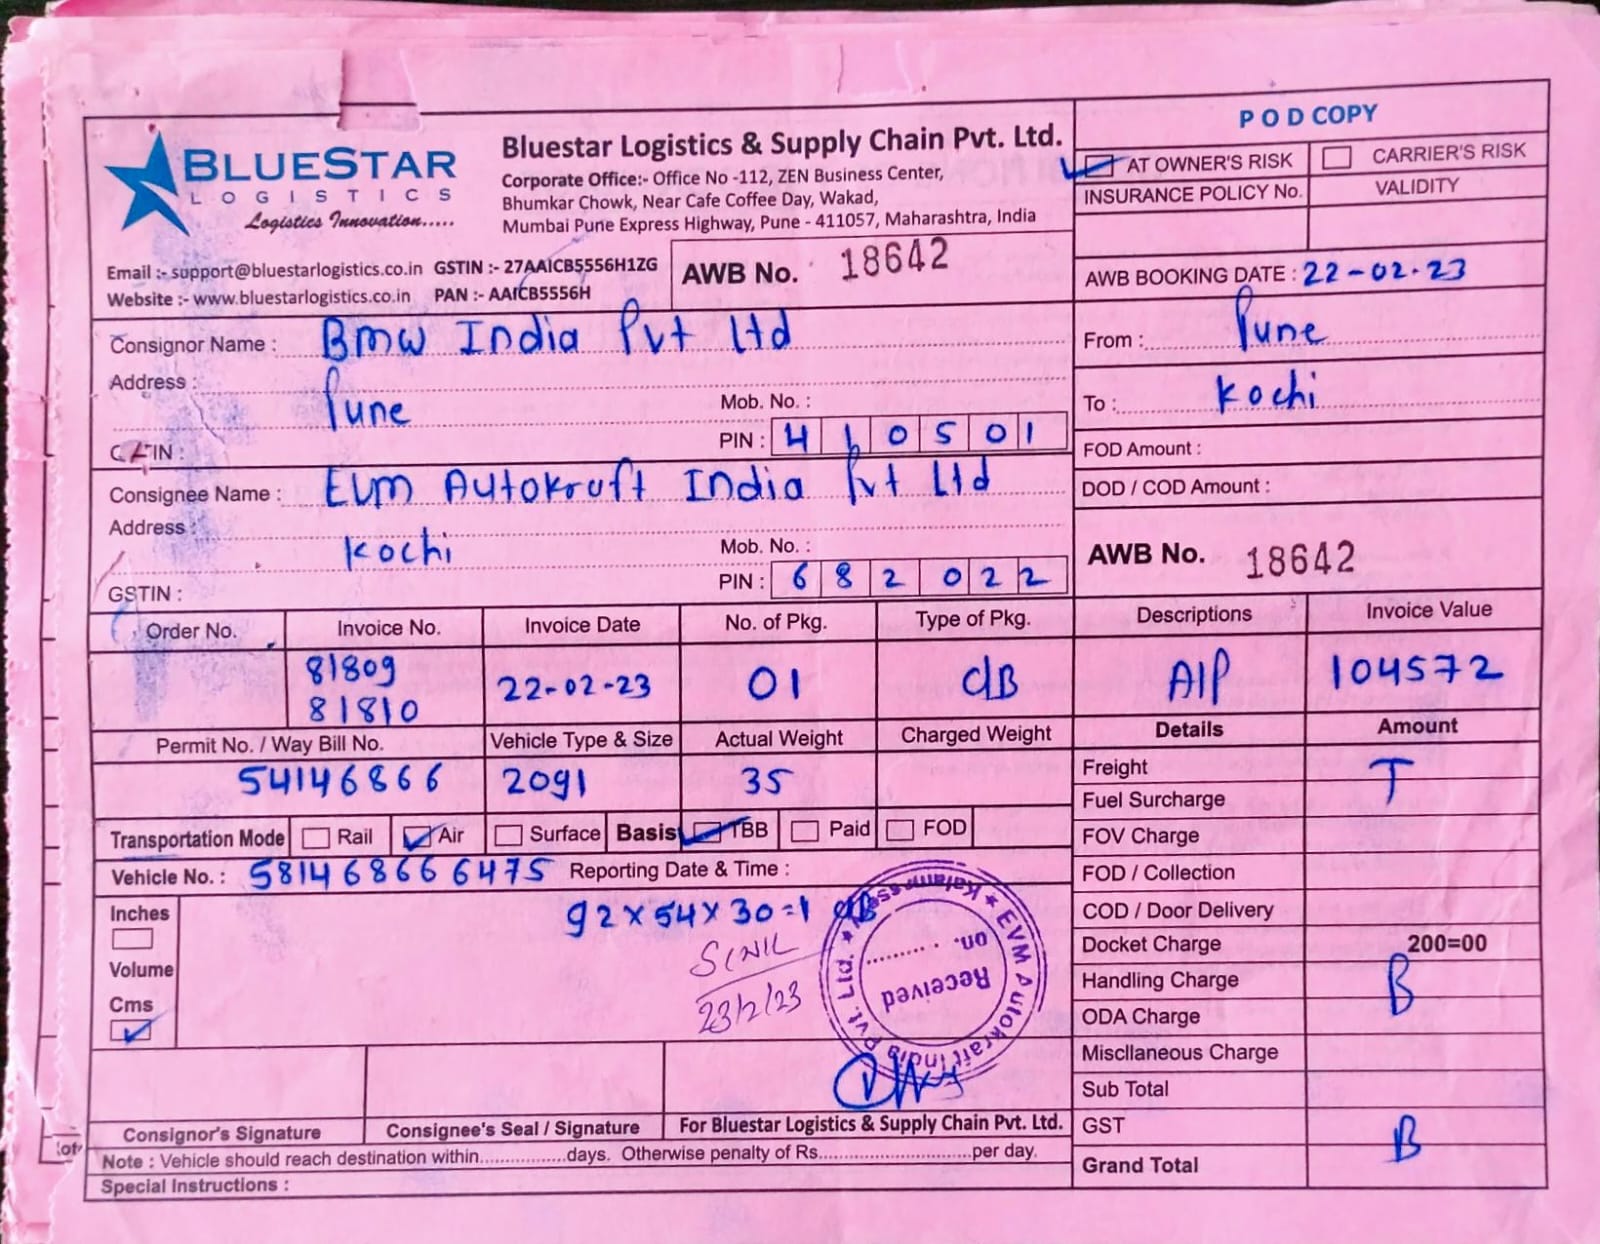 POD COPY
BLUESTAR
LOGISTICS
Logistics Innovation.....
Bluestar Logistics & Supply Chain Pvt. Ltd.
Corporate Office:- Office No -112, ZEN Business Center,
Bhumkar Chowk, Near Cafe Coffee Day, Wakad,
Mumbai Pune Express Highway, Pune - 411057, Maharashtra, India
AT OWNER'S RISK CARRIER'S RISK
INSURANCE POLICY No. VALIDITY
Email :- support@bluestarlogistics.co.in GSTIN :- 27AAICB5556H1ZG
Website :- www.bluestarlogistics.co.in PAN :- AAICB5556H
AWB No. 18642
AWB BOOKING DATE : 22-02-23
Consignor Name : Bmw India Pvt Ltd
From : Pune
Address :
Pune
Mob. No. :
To : Kochi
PIN : 410501
FOD Amount :
Consignee Name : Evm Autokruft India Pvt Ltd
DOD / COD Amount :
Address :
Kochi
Mob. No. :
AWB No. 18642
GSTIN :
PIN : 682022
Order No. Invoice No. Invoice Date No. of Pkg. Type of Pkg. Descriptions Invoice Value
81809
81810
22-02-23 01 CB AIP 104572
Permit No. / Way Bill No. Vehicle Type & Size Actual Weight Charged Weight Details Amount
54146866 2091 35
Freight T
Fuel Surcharge
Transportation Mode Rail Air Surface Basis TBB Paid FOD
FOV Charge
Vehicle No. : 581468666475 Reporting Date & Time :
FOD / Collection
Inches
92x54x30=1 CB
COD / Door Delivery
Volume
Docket Charge 200=00
Cms
23/2/23
Handling Charge B
ODA Charge
EVM Autokraft India Pvt. Ltd.
Received
on.
Miscllaneous Charge
Sub Total
Consignor's Signature Consignee's Seal / Signature For Bluestar Logistics & Supply Chain Pvt. Ltd.
GST B
Note : Vehicle should reach destination within................days. Otherwise penalty of Rs............................per day.
Grand Total
Special Instructions :